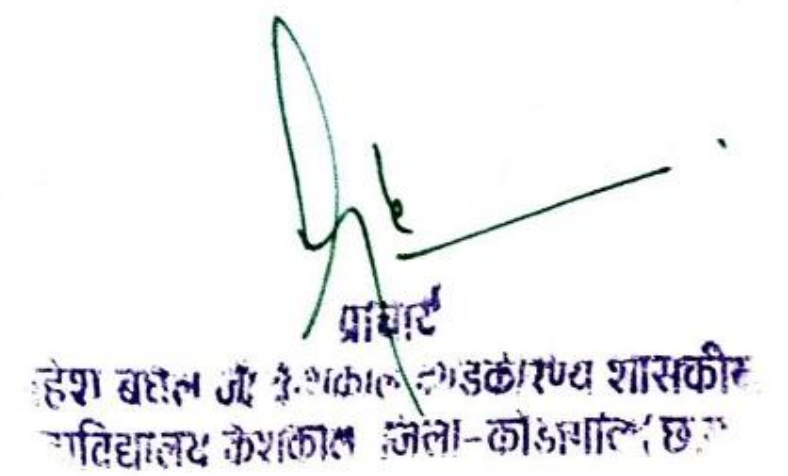 प्राचार्य
हेश बघेल जी केशकाल दण्डकारण्य शासकीय
ाविद्यालय केशकाल जिला-कोंडागांव (छ.ग.